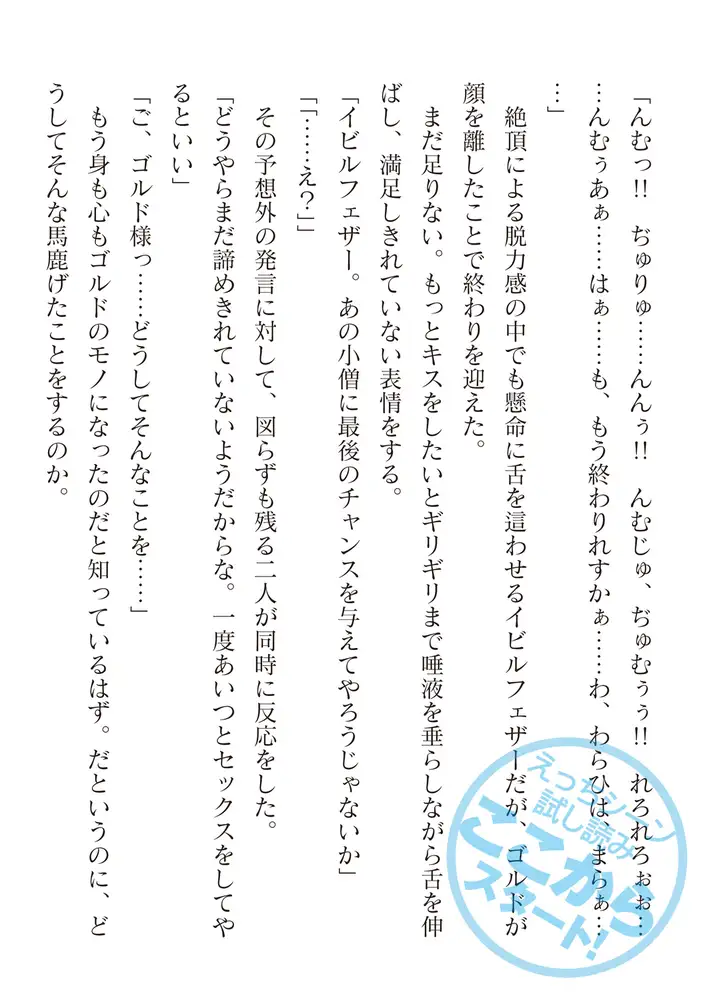 「んむっ!!　ぢゅりゅ……んんぅ!!　んむじゅ、ぢゅむぅぅ!!　れろれろぉぉ…
…んむぅあぁ……はぁ……も、もう終わりれすかぁ……わ、わらひは、まらぁ…
…」
　絶頂による脱力感の中でも懸命に舌を這わせるイビルフェザーだが、ゴルドが
顔を離したことで終わりを迎えた。
　まだ足りない。もっとキスをしたいとギリギリまで唾液を垂らしながら舌を伸
ばし、満足しきれていない表情をする。
「イビルフェザー。あの小僧に最後のチャンスを与えてやろうじゃないか」
「「……え？」」
　その予想外の発言に対して、図らずも残る二人が同時に反応をした。
「どうやらまだ諦めきれていないようだからな。一度あいつとセックスをしてや
るといい」
「ご、ゴルド様っ……どうしてそんなことを……」
　もう身も心もゴルドのモノになったのだと知っているはず。だというのに、ど
うしてそんな馬鹿げたことをするのか。
えっちシーン
試し読み
ここから
スタート!